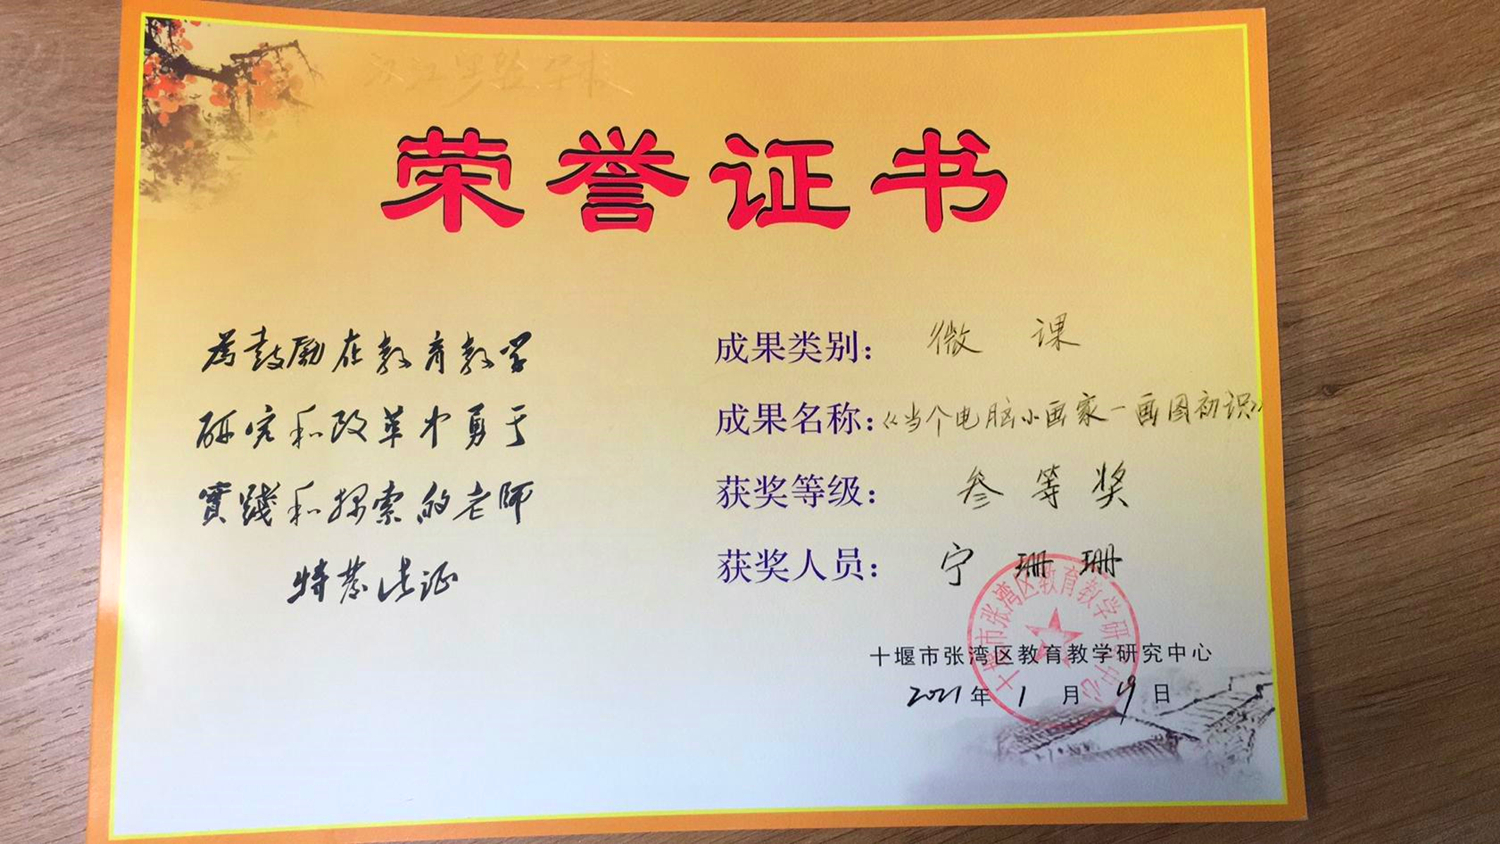 汉江实验学校
荣誉证书
为鼓励在教育教学
研究和改革中勇于
實踐和探索的老师
特发此证
成果类别：微课
成果名称：《当个电脑小画家—画图初识》
获奖等级：叁等奖
获奖人员：宁珊珊
十堰市张湾区教育教学研究中心
十堰市张湾区教育教学研究中心
2021年1月19日